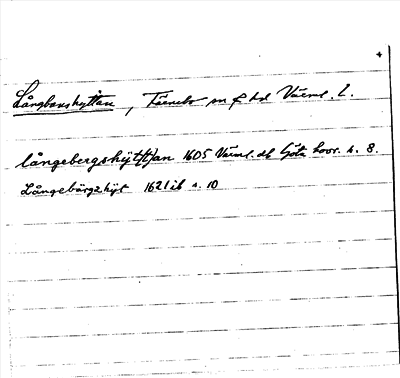 Långbanshyttan, Färnebo sn o hd Värml. l.
långebergshyt(t)an 1605 Värml. db Göta hovr. n. 8.
Långebärgzhyt 1621 ib n. 10